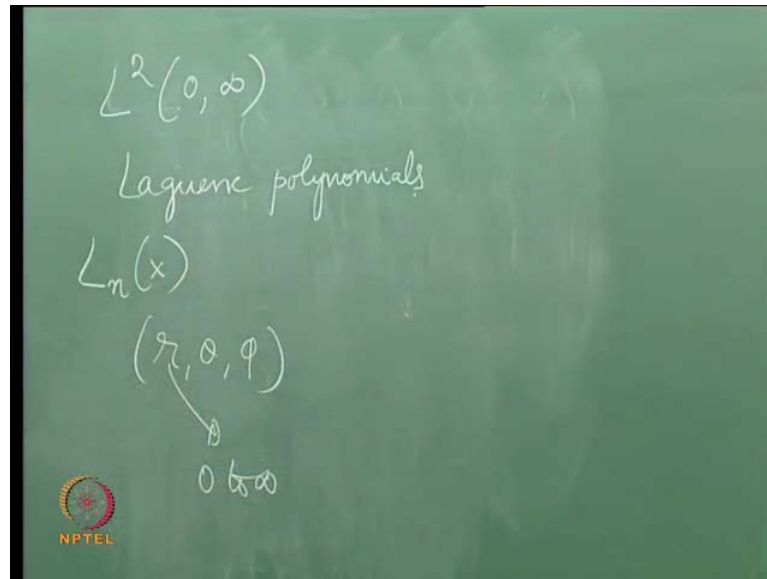 L²(0, ∞)
Laguerre polynomials
Lₙ(x)
(r, θ, φ)
0 to ∞
NPTEL